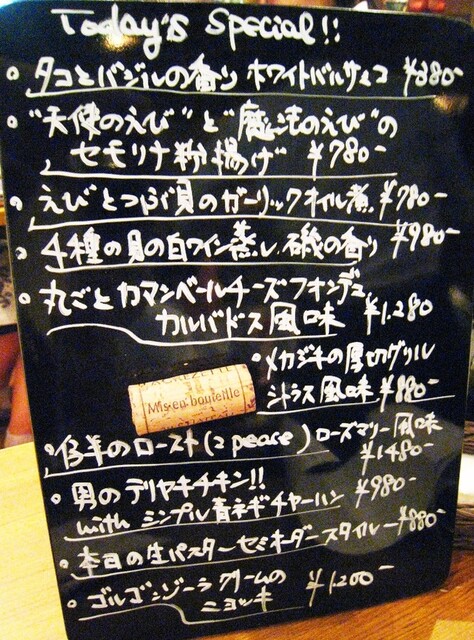 Today's Special!!
• タコとバジルの香り ホワイトバルサミコ ¥880-
• "天使のえび"と"魔法のえび"の
セモリナ粉揚げ ¥780-
• えびとつぶ貝のガーリックオイル煮 ¥780-
• 4種の貝の白ワイン蒸し 磯の香り ¥980-
• 丸ごとカマンベールチーズフォンデュ
カルバドス風味 ¥1,280
• メカジキの厚切グリル
シトラス風味 ¥880-
Mis en bouteille
• 仔羊のロースト(2 peace) ローズマリー風味
¥1480-
• 男のテリヤキチキン!!
with シンプル青ネギチャーハン ¥980-
• 本日の生パスターセミオーダースタイルー ¥880-
• ゴルゴンゾーラクリームの
ニョッキ ¥1200-